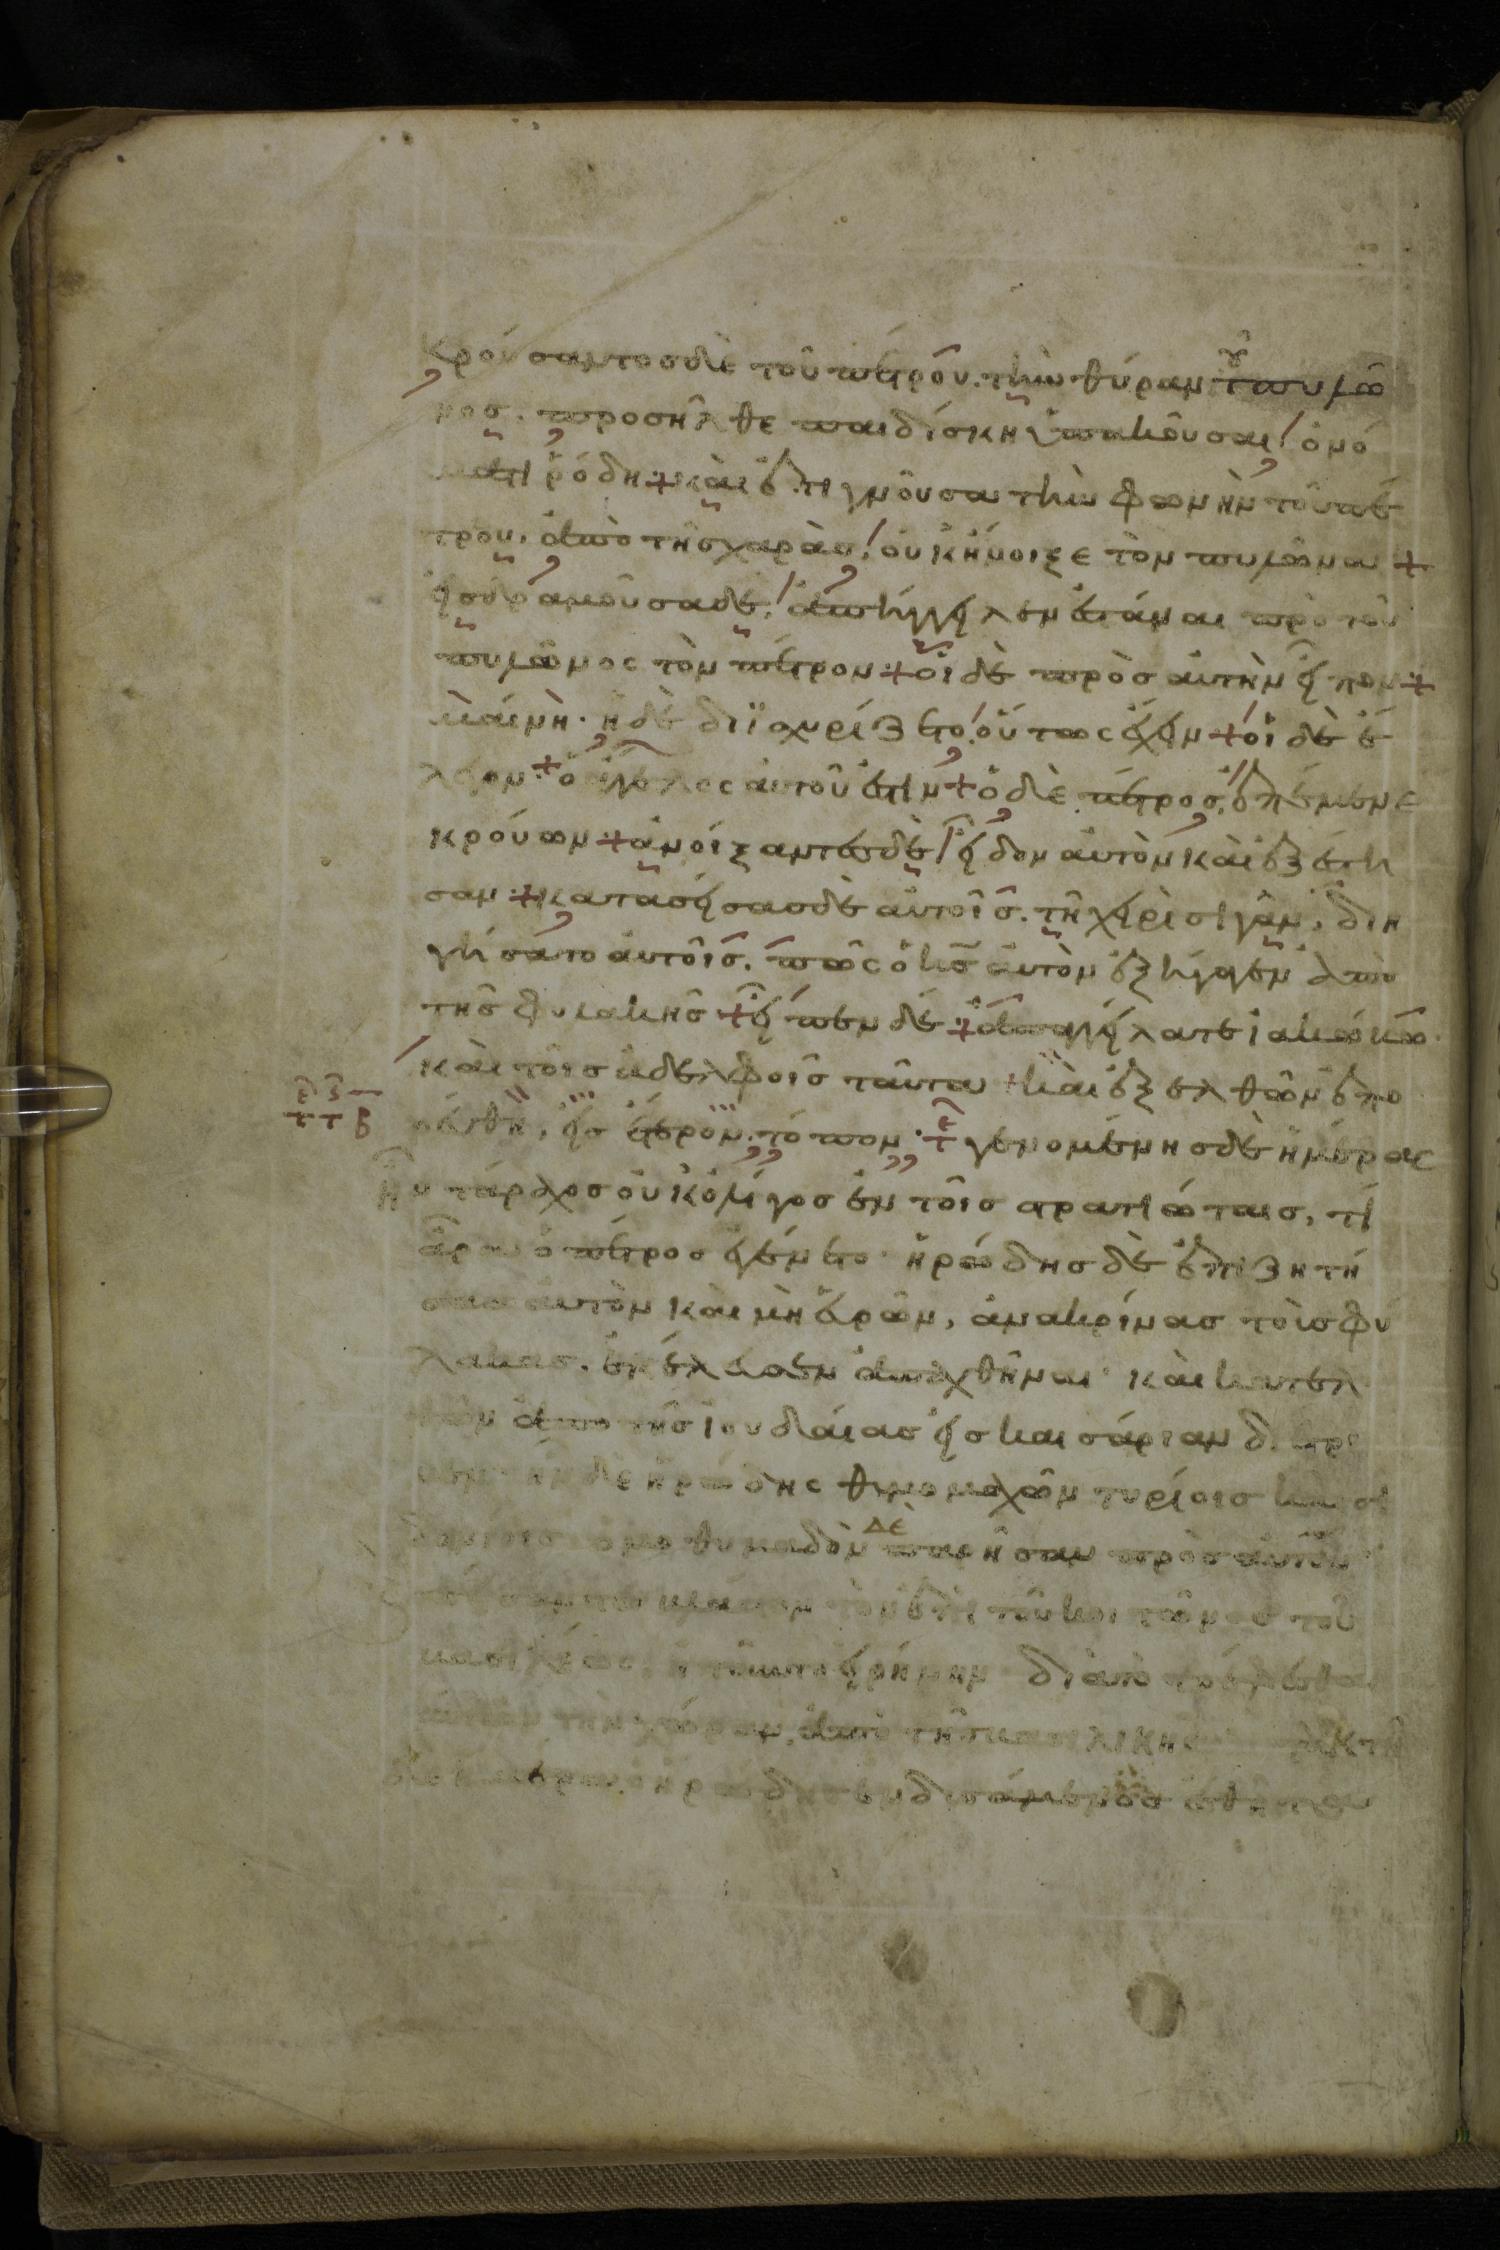 Κρούσαντοσ δὲ τοῦ πέτρου. τὴν θύραν τοῦ πυλῶ
νοσ. προσῆλθε παιδίσκη ὑπακοῦσαι ὀνό
ματι ῥόδη + καὶ ἐπιγνοῦσα τὴν φωνὴν τοῦ πέ
τρου, ἀπὸ τῆσ χαρᾶσ, οὐκ ἤνοιξε τὸν πυλῶνα +
εἰσδραμοῦσα δὲ, ἀπήγγειλεν ἑστάναι πρὸ τοῦ
πυλῶνοσ τὸν πέτρον + οἱ δὲ πρὸσ αὐτὴν εἶπον +
μαίνη. ἡ δὲ διϊσχυρίζετο οὕτωσ ἔχειν + οἱ δὲ ἔ
λεγον + ὁ ἄγγελοσ αὐτοῦ ἐστιν + ὁ δὲ πέτροσ, ἐπέμενε
κρούων + ἀνοίξαντεσ δὲ εἶδον αὐτὸν καὶ ἐξέστη
σαν + κατασείσασ δὲ αὐτοῖσ. τῆ χειρὶ σιγᾶν, διη
γήσατο αὐτοῖσ. πῶσ ὁ κσ αὐτὸν ἐξήγαγεν ἀπὸ
τῆσ φυλακῆσ + εἶπεν δέ + ἀπαγγείλατε ἰακώβω
καὶ τοῖσ ἀδελφοῖσ ταῦτα + καὶ ἐξελθὼν ἐπο
ρεύθη, εἰσ ἕτερον τόπον. γενομένησ δὲ ἡμέρασ
ἦν τάραχοσ οὐκ ὀλίγοσ ἐν τοῖσ στρατιώταισ, τί
ἄρα ὁ πέτροσ ἐγένετο. ἡρώδησ δὲ ἐπιζητή
σασ αὐτὸν καὶ μὴ εὑρὼν, ἀνακρίνασ τοὺσ φύ
λακασ. ἐκέλευσεν ἀπαχθῆναι. καὶ κατελ
θὼν ἀπὸ τῆσ ἰουδαίασ εἰσ καισάρειαν
ἦν δὲ ἡρώδησ θυμομαχῶν τυρίοισ καὶ σι
δωνίοισ ὁμοθυμαδὸν δὲ παρῆσαν πρὸσ αὐτὸν
τὸν ἐπὶ τοῦ κοιτῶνοσ τοῦ
βασιλέωσ, ἠτοῦντο εἰρήνην διὰ τὸ τρέφεσθαι
αὐτῶν τὴν χώραν, ἀπὸ τῆσ βασιλικῆσ τακτῆ
δὲ ἡμέρα ὁ ἡρώδησ ἐνδυσάμενοσ ἐσθῆτα